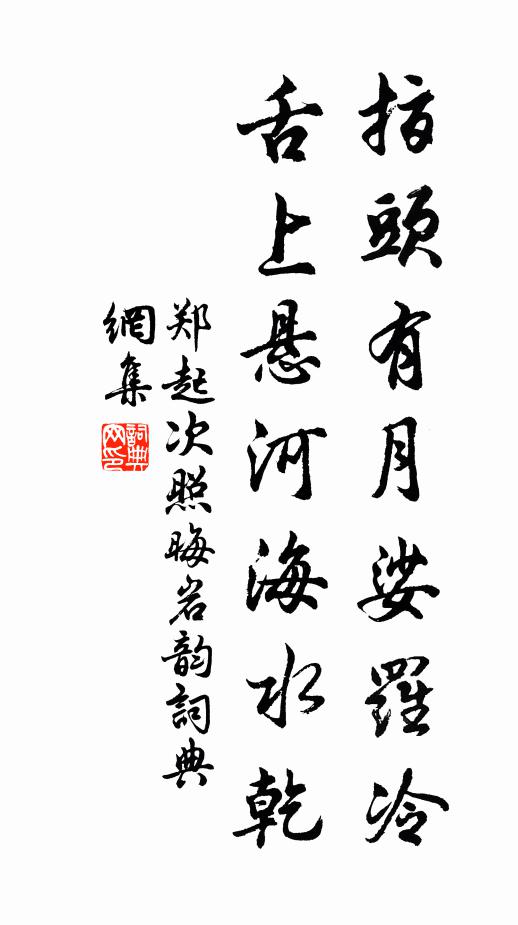 指頭有月娑羅冷
舌上悬河海水乾
郑起次照晦岩韵詞典
網集
詞典網印